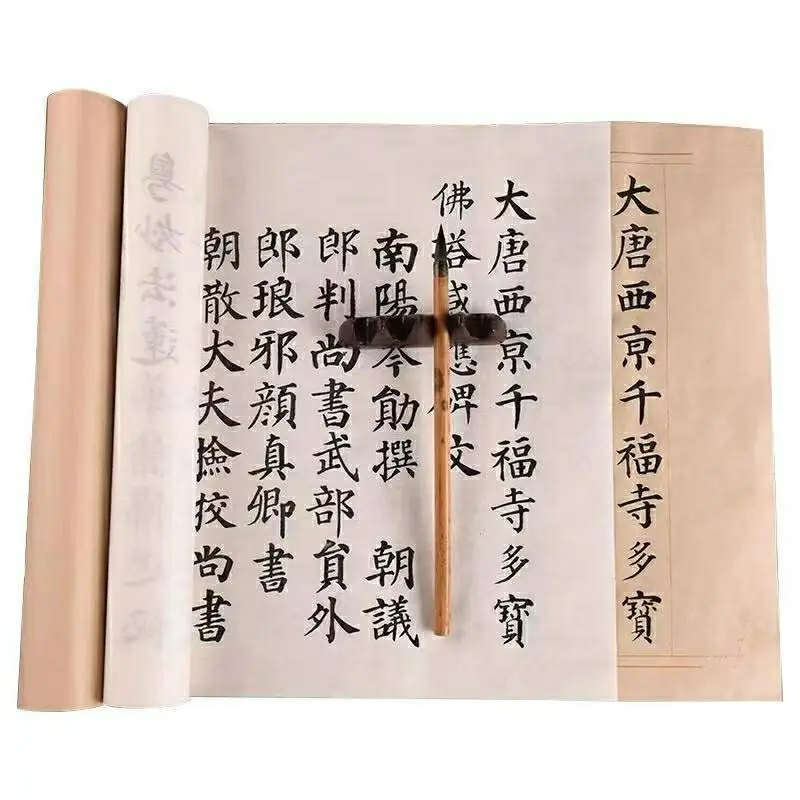 大唐西京千福寺多寶
大唐西京千福寺多寶
佛塔感應碑文
南陽岑勛撰 朝議
郎判尚書武部員外
郎琅邪顏真卿書
朝散大夫撿挍尚書
粵妙法蓮華